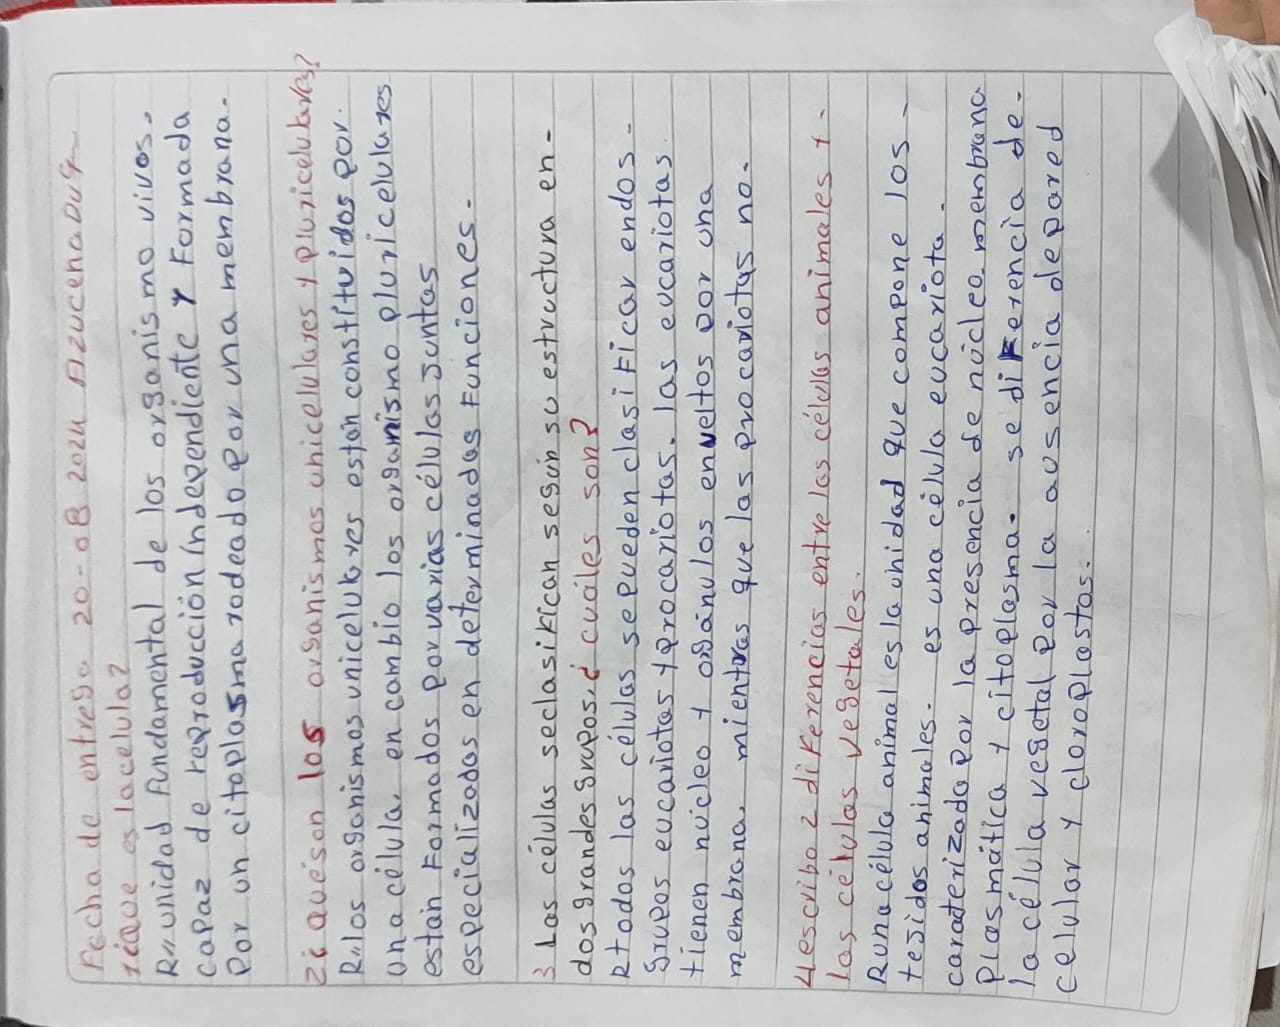 Fecha de entrega 20-08 2024 Azucena Duq
1¿que es la celula?
R// unidad fundamental de los organismo vivos.
capaz de reproducción independiente y Formada
por un citoplasma rodeado por una membrana.
2¿ queson los organismos unicelulares y pluricelulares?
R// los organismos unicelulares están constituidos por.
una célula. en cambio los organismo pluricelulares
están Formados por varias células juntas
especializadas en determinadas Funciones.
3 Las células se clasifican según su estructura en-
dos grandes grupos. ¿ cuales son?
R todas las células se pueden clasiFicar en dos-
grupos eucariotas y procariotas. las eucariotas.
tienen núcleo y orgánulos envueltos por una
membrana. mientras que las procariotas no.
4 escribo 2 diferencias entre las células animales y.
las células vegetales.
R una célula animal es la unidad que compone los-
tejidos animales. es una célula eucariota.
caraterizada por la presencia de núcleo membrana
plasmática y citoplasma. se diferencia de.
la célula vegetal por la ausencia de pared
celular y cloroplastos.